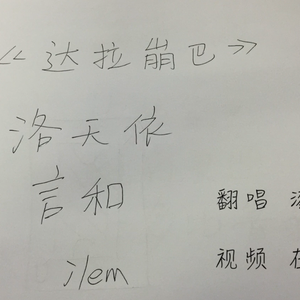 《达拉崩巴》
洛天依
言和
ilem
翻唱
视频